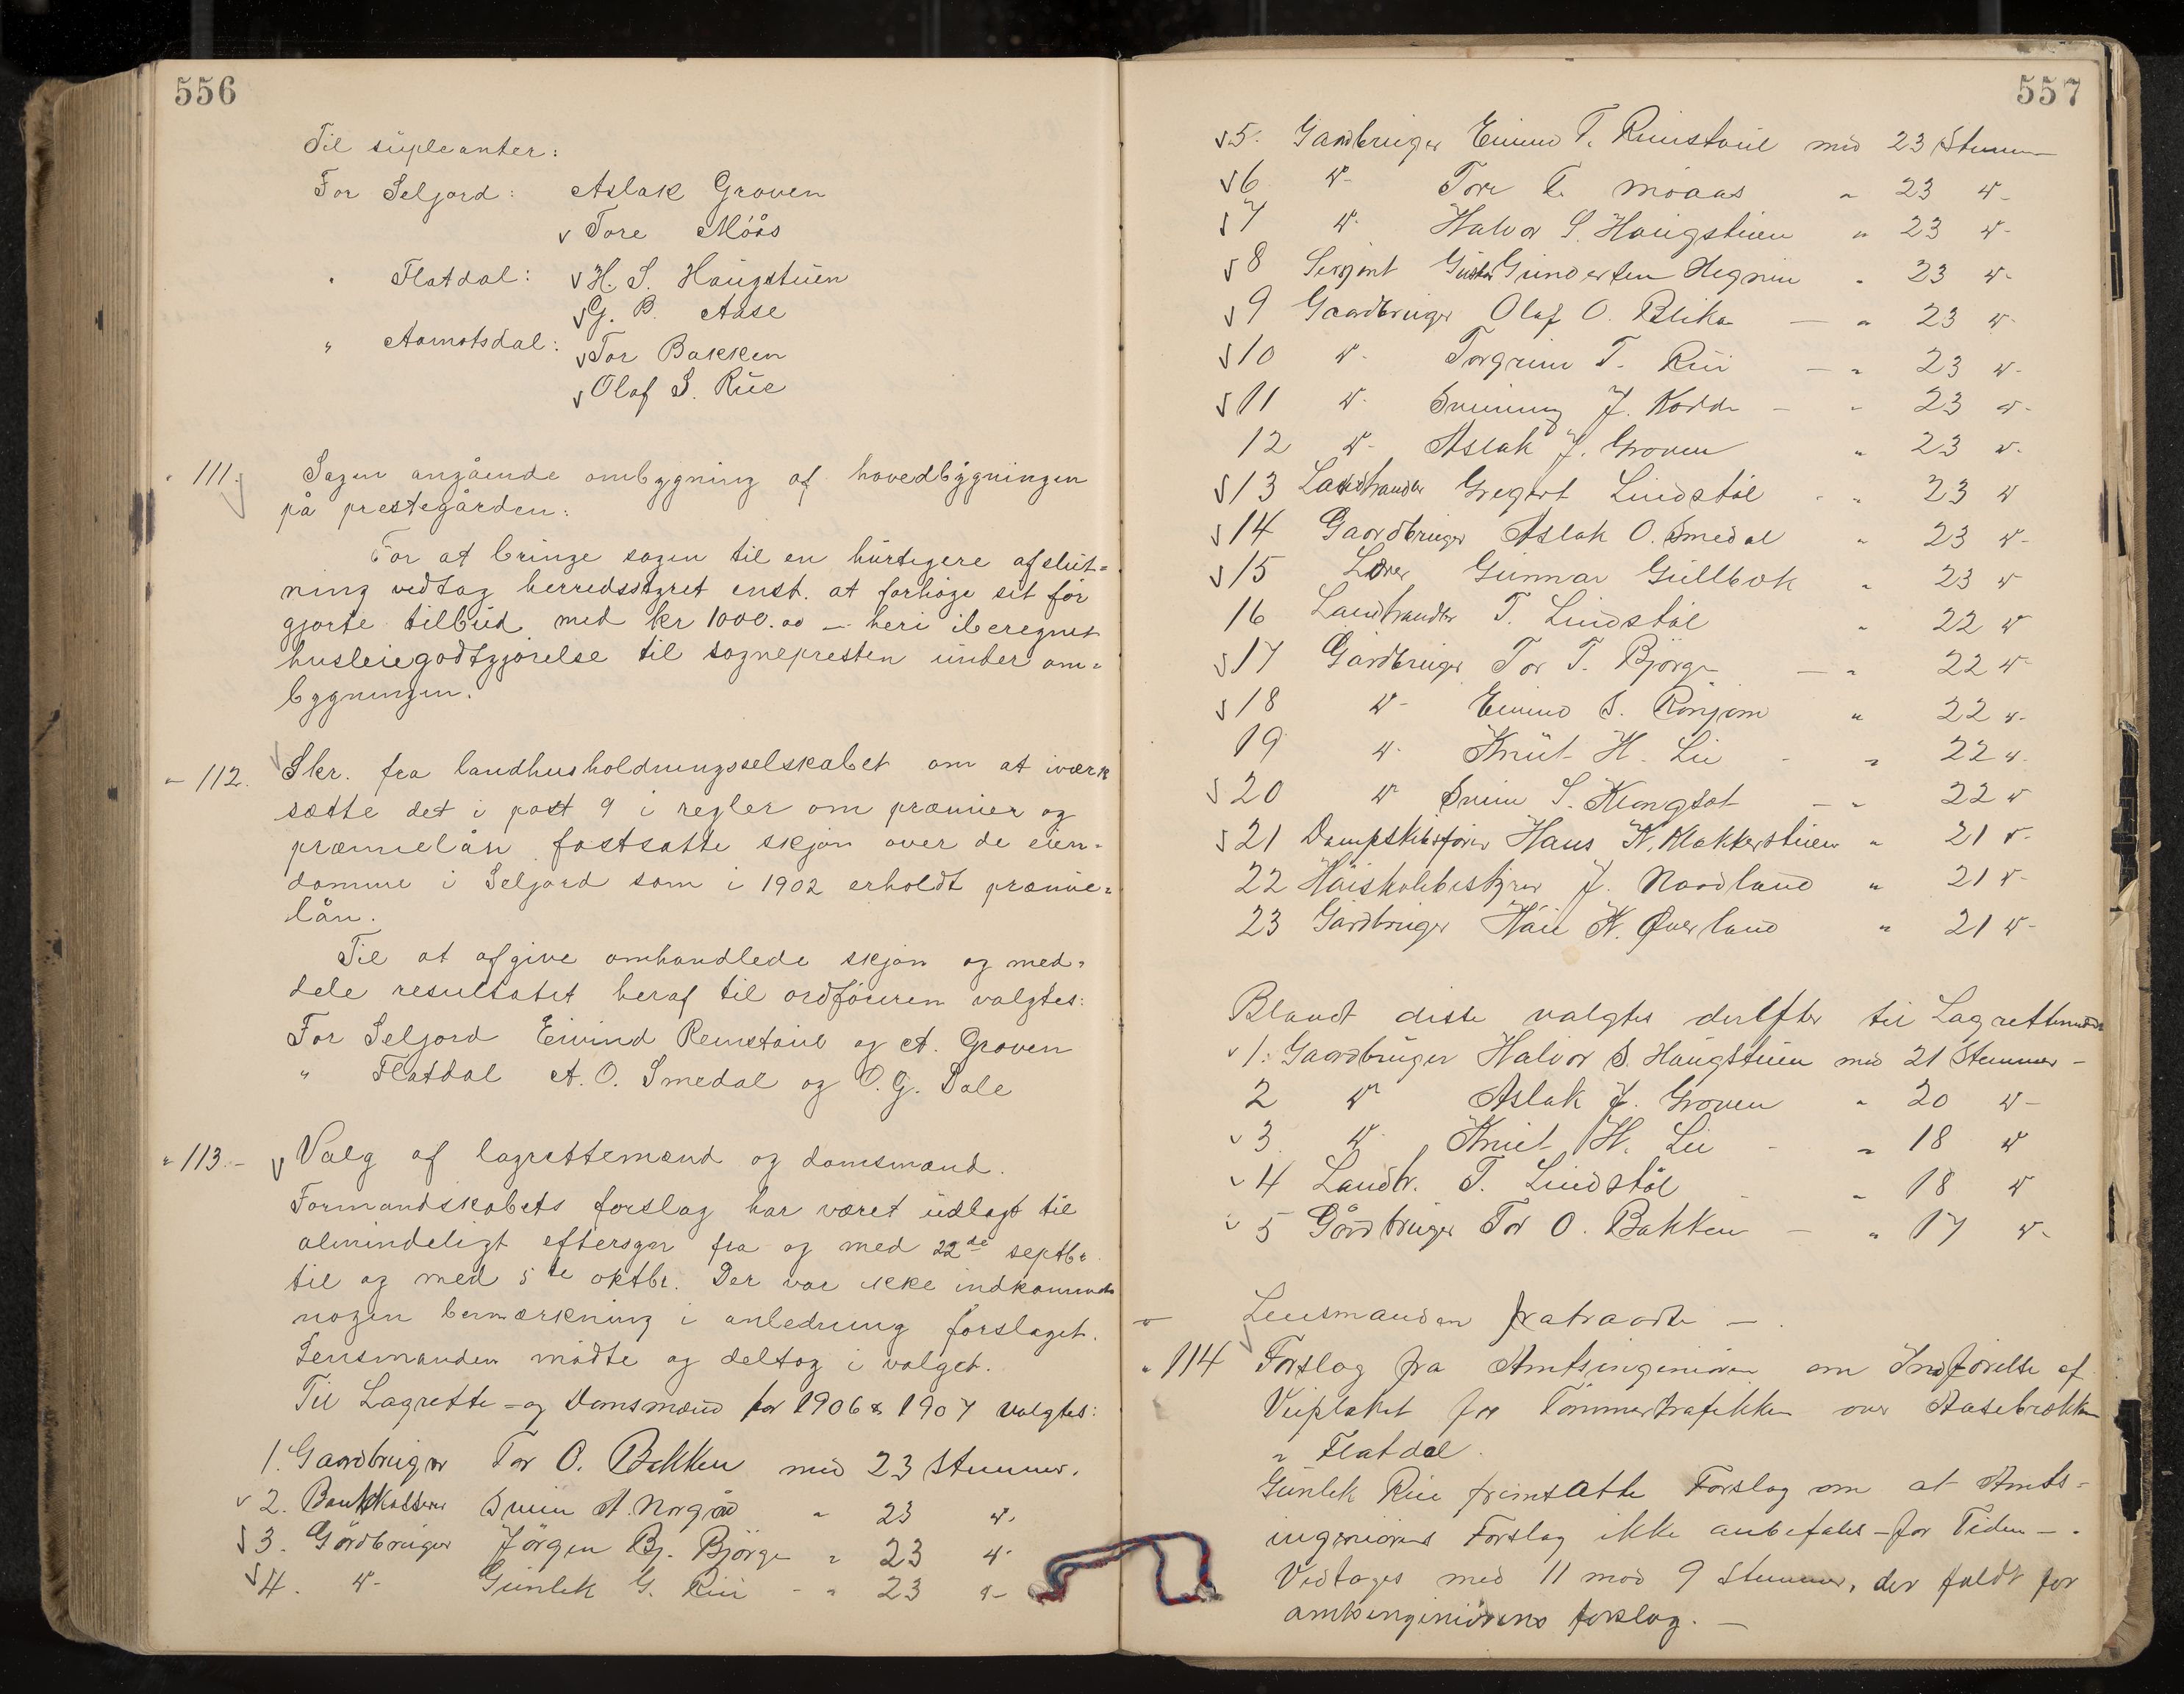 556
Til supleanter:
For Seljord: Aslak Groven
v Tore Móás
" Flatdal: v H. S. Haugstuen
v G. B. Aase
" Aamotsdal: v Tor Bakken
v Olaf S. Rue
" 111. Sagen angående ombygning af hovedbygningen
på prestegården:
For at bringe sagen til en hurtigere afslut=
ning vedtog herredsstyret enst. at forhøge sit før
gjorte tilbud med kr 1000.00 — heri iberegnet
husleiegodtgjørelse til sognepresten under om=
bygningen.
" 112. Skr. fra landhusholdningsselskabet om at iværk
sætte det i post 9 i regler om præmier og
præmielån fastsatte skjøn over de eien=
domme i Seljord som i 1902 erholdt præmie=
lån.
Til at afgive omhandlede skjøn og med=
dele resultatet heraf til ordføreren valgtes:
For Seljord Eivind Reinstaul og A. Groven
" Flatdal A. O. Smedal og O. G. Dale
" 113.- v Valg af lagrettemænd og domsmænd.
Formandskabets forslag har været udlagt til
almindeligt eftersyn fra og med 22de septbr.
til og med 5te oktbr. Der var ikke indkommet
nogen bemærkning i anledning forslaget.
Lensmanden mødte og deltog i valget.
Til Lagrette- og Domsmænd for 1906 & 1907 valgtes:
1. Gaardbruger Tor O. Bakken med 23 Stemmer.
v 2. Bankkasserer Svein A. Norgård " 23 "
v 3. Gårdbruger Jørgen Bj. Bjørge " 23 "
v 4. " Gunlek G. Rui " 23 "
557
v 5. Gaardbruger Eivind T. Reinstaul med 23 Stemmer
v 6 " Tore T. Moaas " 23 "
v 7 " Halvor S. Haugstuen " 23 "
v 8 Sergent Gundersen Hegnin " 23 "
v 9 Gaardbruger Olaf O. Blika — " 23 "
v 10 " Torgrim T. Rui — " 23 "
v 11 " Sveinung J. Kodde — " 23 "
12 " Aslak J. Groven " 23 "
v 13 Landhandler Gregert Lindstøl - " 23 "
v 14 Gaardbruger Aslak O. Smedal " 23 "
v 15 Lærer Gunnar Gullbæk " 23 "
16 Landhandler T. Lindstøl " 22 "
v 17 Gårdbruger Tor T. Bjørge — " 22 "
v 18 " Eivind S. Rånjom " 22 "
19 " Knut H. Lie - " 22 "
v 20 " Svein S. Klongsot — " 22 "
v 21 Dampskibsfører Hans K. Klakkerstuen " 21 "
22 Høiskolebestyrer J. Nordland " 21 "
23 Gårdbruger K. Øverland " 21 "
Blandt disse valgtes derefter til Lagrettemænd
v 1. Gaardbruger Halvor S. Haugstuen med 21 Stemmer —
2 " Aslak J. Groven " 20 "
v 3 " Knut H. Lie - " 18 "
v 4 Landh. T. Lindstøl - " 18 "
v 5 Gårdbruger Tor O. Bakken — " 17 "
Lensmanden fratraadte — .
" 114 Forslag fra Amtsingeniøren om Indførelse af
Veiplakat for Tømmertrafikken over Aasebrækken
" Flatdal.
Gunlek Rue fremsatte Forslag om at Amts=
ingeniørens Forslag ikke anbefales — for Tiden — .
Vedtoges med 11 mod 9 Stemmer, der faldt for
amtsingeniørens forslag. —